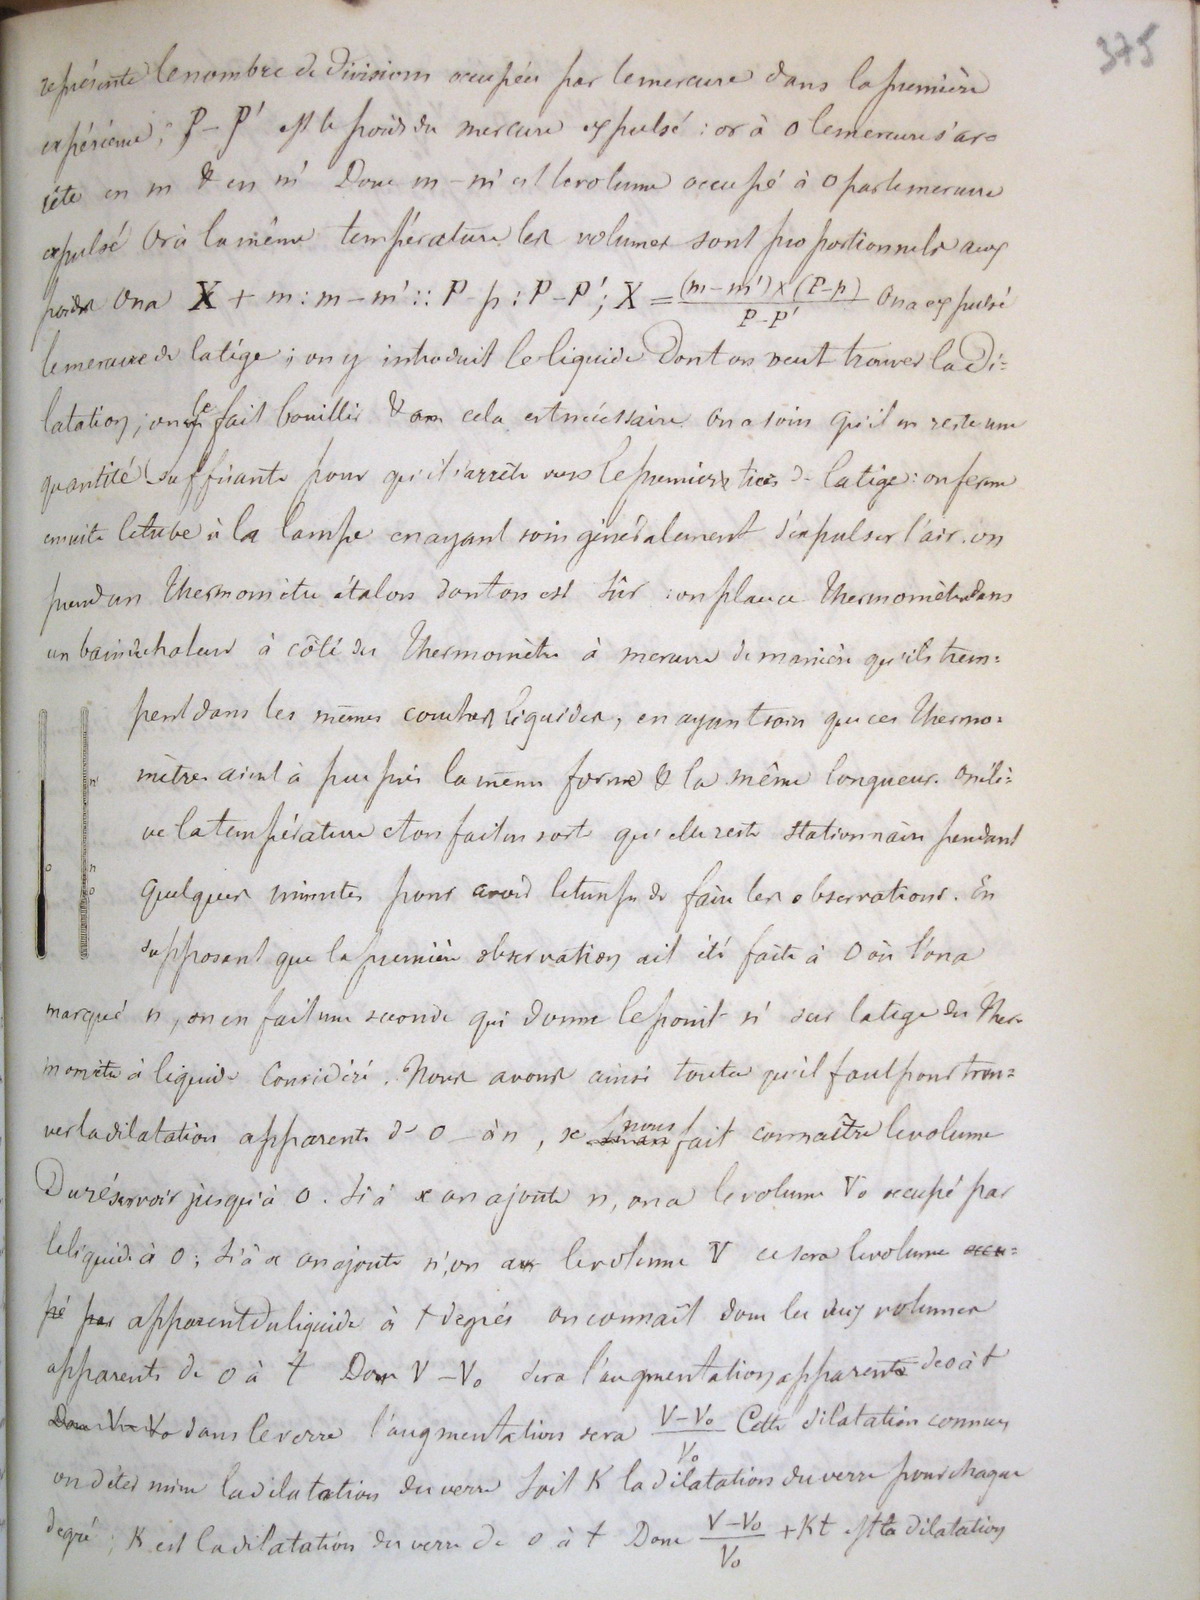 375
représente le nombre de divisions occupées par le mercure dans la première
expérience; P – P' est le poids du mercure expulsé : or à 0 le mercure s'ar=
rête en m & en m' Donc m – m' est le volume occupé à 0 par le mercure
expulsé Or à la même température les volumes sont proportionnels aux
poids On a X + m : m – m' :: P - p : P – P' ; X = (m – m') x (P – p) / P - P' On a expulsé
le mercure de la tige ; on y introduit le liquide dont on veut trouver la di=
latation ; on le fait bouillir & cela est nécessaire On a soin qu'il en reste une
quantité suffisante pour qu'il s'arrête vers le premier tiers de la tige : on ferme
ensuite le tube à la lampe en ayant soin généralement d'expulser l'air. on
prend un thermomètre étalon dont on est sûr : on place ce thermomètre dans
un bain de chaleur à côté du thermomètre à mercure de manière qu'ils trem=
pent dans les mêmes couches liquides, en ayant soin que ces thermo=
mètres aient à peu près la même forme & la même longueur. On élè=
ve la température et on fait en sorte qu'elle reste stationnaire pendant
quelques minutes pour avoir le temps de faire les observations. En
supposant que la première observation ait été faite à 0 où l'on a
marqué n, on en fait une seconde qui donne le point n' sur la tige du ther=
momètre à liquide considéré. Nous avons ainsi tout ce qu'il faut pour trou=
ver la dilatation apparente de 0 à n, x nous fait connaître le volume
Du réservoir jusqu'à 0. Si à x on ajoute n, on a le volume V₀ occupé par
le liquide à 0 ; si à x on ajoute n', on a le volume V ce sera le volume occu=
pé par apparent du liquide à t degrés on connaît donc les deux volumes
apparents de 0 à t Donc V – V₀ sera l'augmentation apparente de 0 à t
Donc V – V₀ dans le verre l'augmentation sera V – V₀ / V₀ Cette dilatation connue
on détermine la dilatation du verre Soit K la dilatation du verre pour chaque
degré ; K est la dilatation du verre de 0 à t Donc V – V₀ / V₀ + Kt est la dilatation
o
n'
n
o